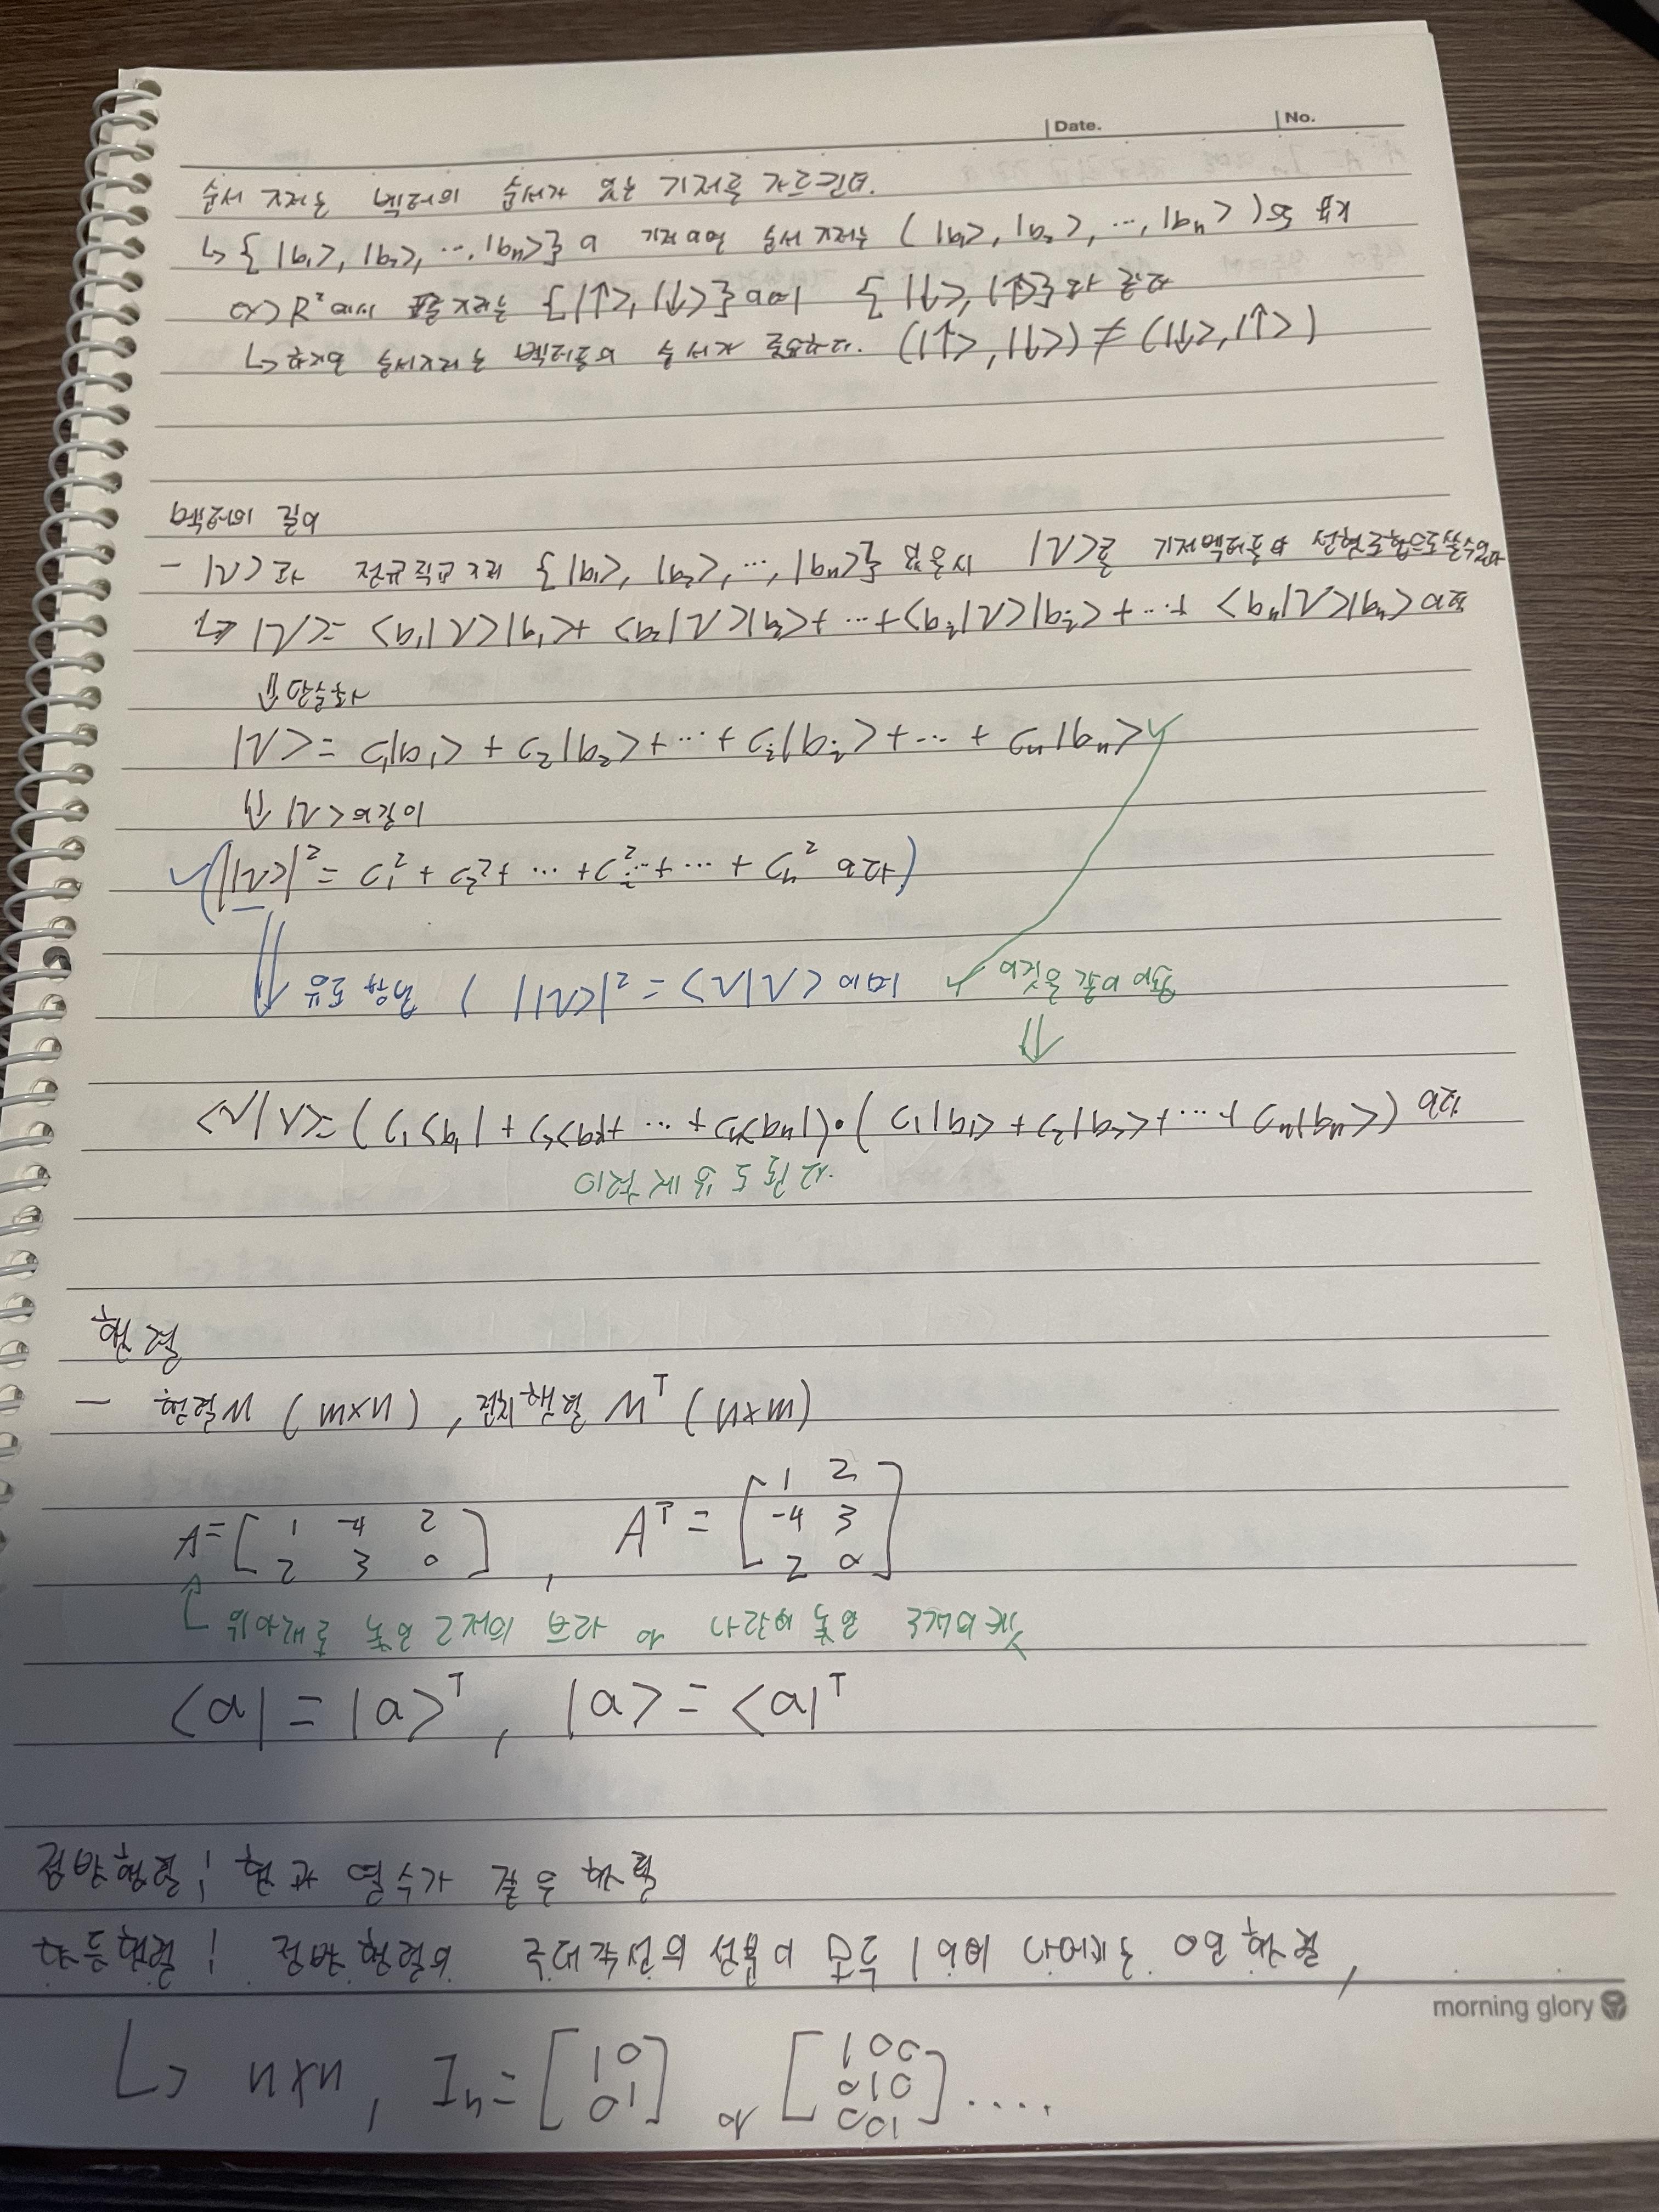 Date. No.
순서 기저는 벡터의 순서가 있는 기저를 가르킨다.
↳ {|b₁>, |b₂>, …, |bₙ>}이 기저이면 순서 기저는 (|b₁>, |b₂>, …, |bₙ>)로 표기
ex) R²에서 표준기저는 {|↑>, |↓>}이며 {|↓>, |↑>}와 같다
↳ 하지만 순서기저는 벡터들의 순서가 중요하다. (|↑>, |↓>) ≠ (|↓>, |↑>)
벡터의 길이
- |V>과 정규직교기저 {|b₁>, |b₂>, …, |bₙ>} 있을시 |V>를 기저벡터들의 선형조합으로 쓸수있다
↳ |V> = <b₁|V>|b₁> + <b₂|V>|b₂> + … + <bᵢ|V>|bᵢ> + … + <bₙ|V>|bₙ>이며
⇓ 단순화
|V> = c₁|b₁> + c₂|b₂> + … + cᵢ|bᵢ> + … + cₙ|bₙ>
⇓ |V>의 길이
(||V>|² = c₁² + c₂² + … + cᵢ² + … + cₙ² 이다)
⇓ 유도 하면 ) ||V>|² = <V|V>이며 이것을 같이 이용
⇓
<V|V> = (c₁<b₁| + c₂<b₂| + … + cₙ<bₙ|)·(c₁|b₁> + c₂|b₂> + … + cₙ|bₙ>) 이다.
행렬
- 행렬 M (m×n), 전치행렬 Mᵀ (n×m)
A = [1 -4 2
2 3 0] , Aᵀ = [1 2
-4 3
2 0]
↳ 위아래로 놓인 2개의 브라 or 나란히 놓인 3개의 켓
<a| = |a>ᵀ, |a> = <a|ᵀ
정방행렬 : 행과 열 수가 같은 행렬
항등행렬 : 정방행렬의 주대각선의 성분이 모두 1이며 나머지는 0인 행렬,
morning glory
↳ n×n, Iₙ = [1 0
0 1] or [1 0 0
0 1 0
0 0 1] ....